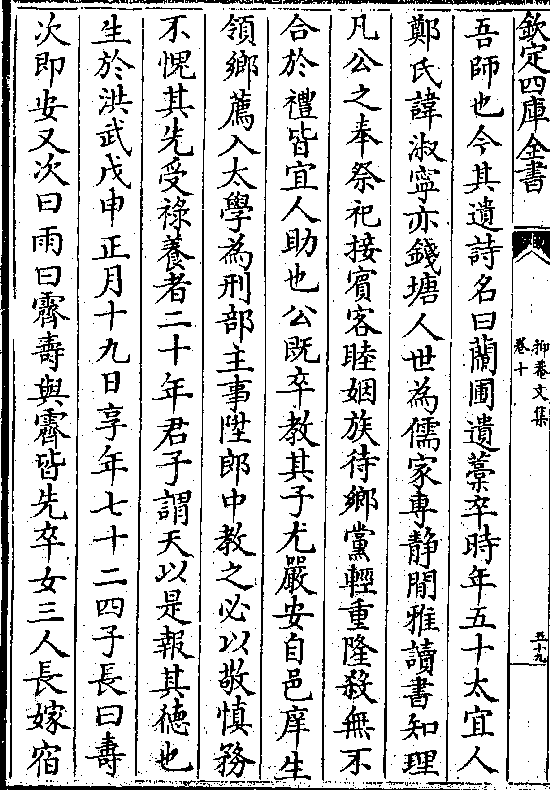 欽定四庫全書
抑菴文集
卷十
五十九
吾師也今其遺詩名曰蘭圃遺藁卒時年五十太宜人
鄭氏諱淑寧亦錢塘人世為儒家專静閒雅讀書知理
凡公之奉祭祀接賓客睦姻族待鄉黨輕重隆殺無不
合於禮皆宜人助也公既卒教其子尤嚴安自邑庠生
領鄉薦入太學為刑部主事陞郎中教之必以敬慎務
不愧其先受祿養者二十年君子謂天以是報其徳也
生於洪武戊申正月十九日享年七十二四子長曰壽
次即安又次曰雨曰霽壽與霽皆先卒女三人長嫁宿